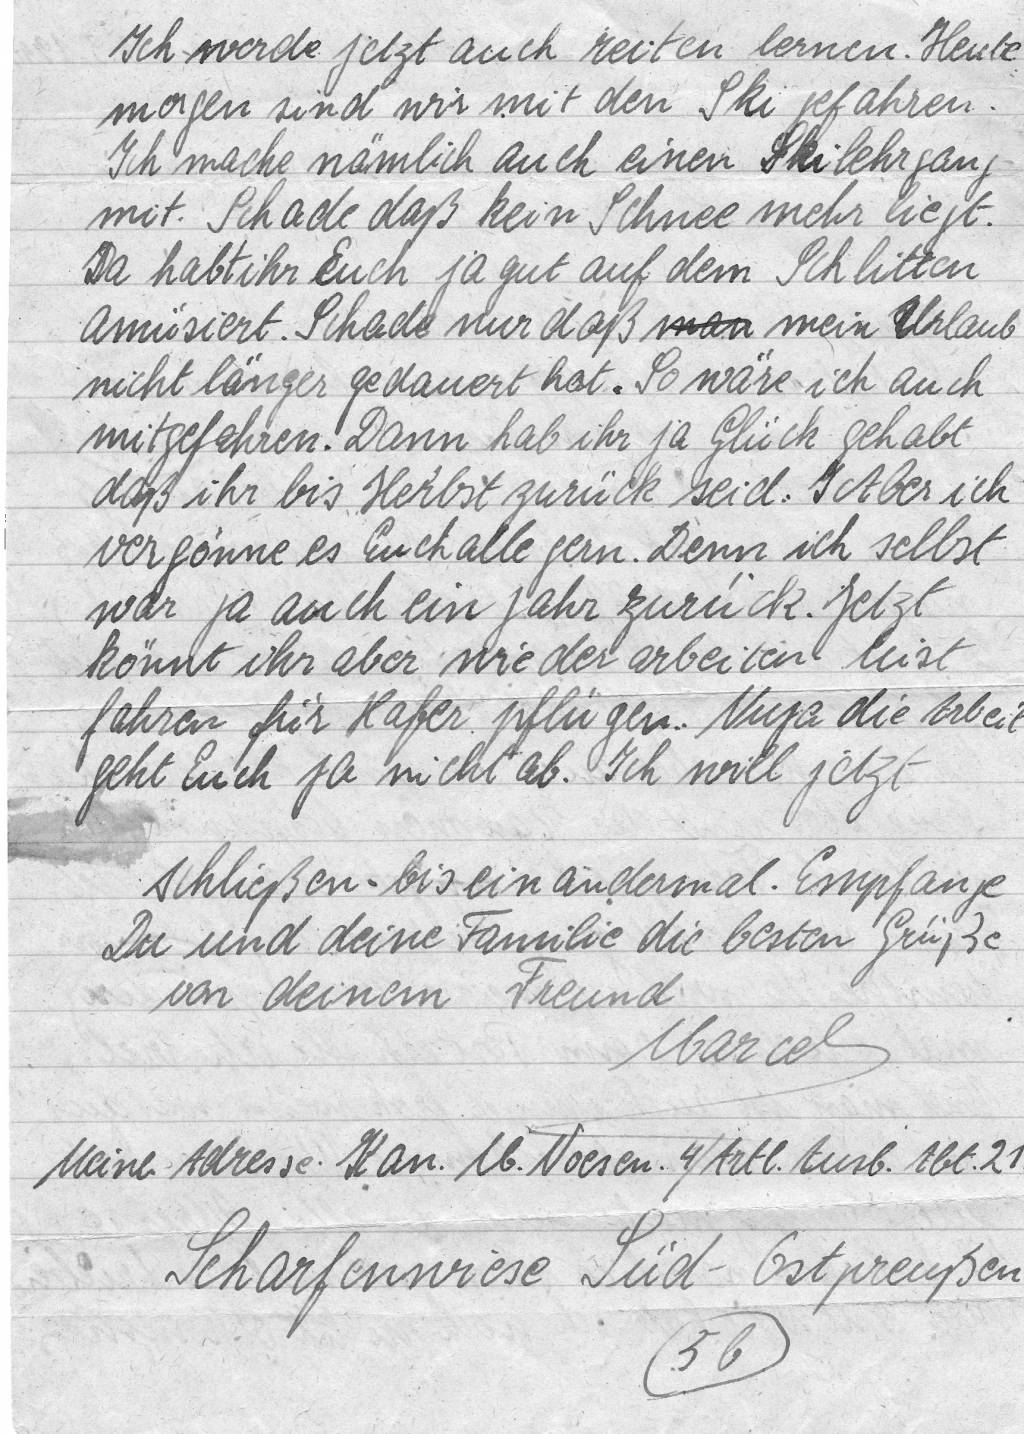 Ich werde jetzt auch reiten lernen. Heute
morgen sind wir mit den Ski gefahren.
Ich mache nämlich auch einen Skilehrgang
mit. Schade daß kein Schnee mehr liegt.
Da habt ihr Euch ja gut auf dem Schlitten
amüsiert. Schade nur daß man mein Urlaub
nicht länger gedauert hat. So wäre ich auch
mitgefahren. Dann hab ihr ja Glück gehabt
daß ihr bis Herbst zurück seid. Aber ich
vergönne es Euch alle gern. Denn ich selbst
war ja auch ein Jahr zurück. Jetzt
könnt ihr aber wieder arbeiten Mist
fahren für Hafer pflügen. Nuja die Arbeit
geht Euch ja nicht ab. Ich will jetzt
schließen. bis ein andermal. Empfange
Du und deine Familie die besten Grüße
von deinem Freund
Marcel
Meine Adresse. Kan. M. Noesen. 4/Artl. Ausb. Abt. 21
Scharfenwiese Süd-Ostpreußen
56